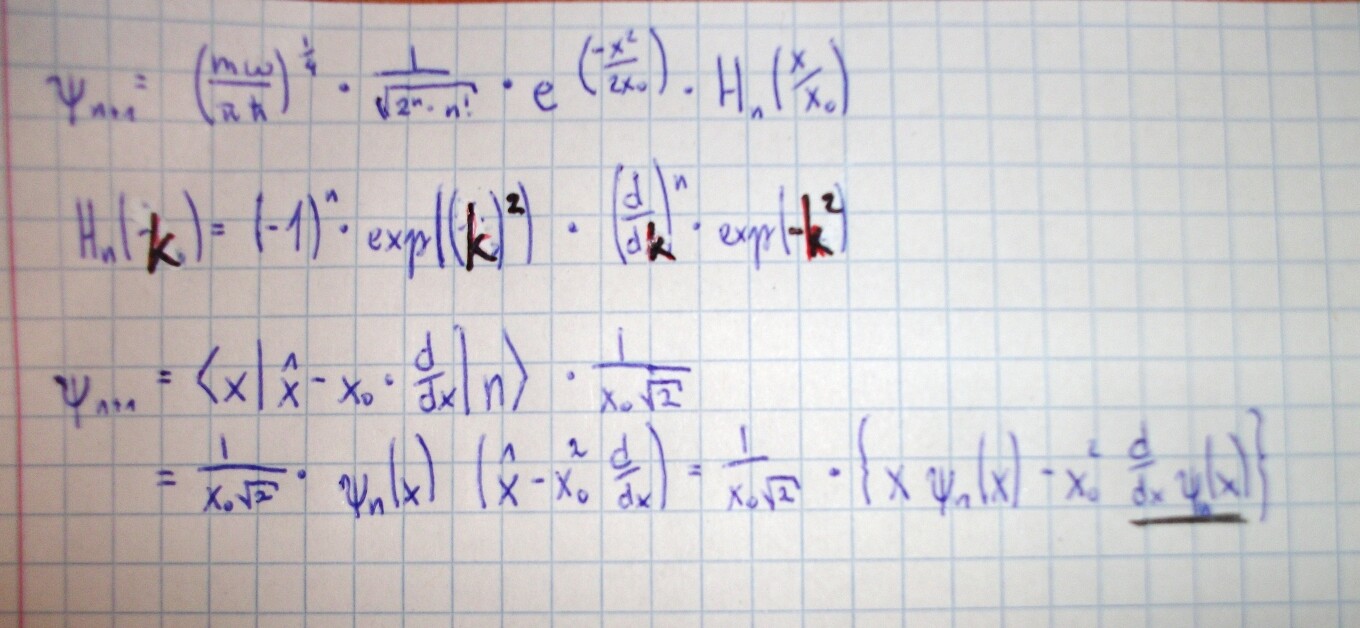 ψₙ₊₁ = (mω/πħ)^(1/4) · 1/√(2ⁿ · n!) · e^(-x²/2x₀) · Hₙ(x/x₀)
Hₙ(k) = (-1)ⁿ · exp((k)²) · (d/dk)ⁿ · exp(-k²)
ψₙ₊₁ = ⟨x| x̂ - x₀ · d/dx |n⟩ · 1/(x₀√2)
= 1/(x₀√2) · ψₙ(x) (x̂ - x₀² d/dx) = 1/(x₀√2) · {x ψₙ(x) - x₀² d/dx ψₙ(x)}